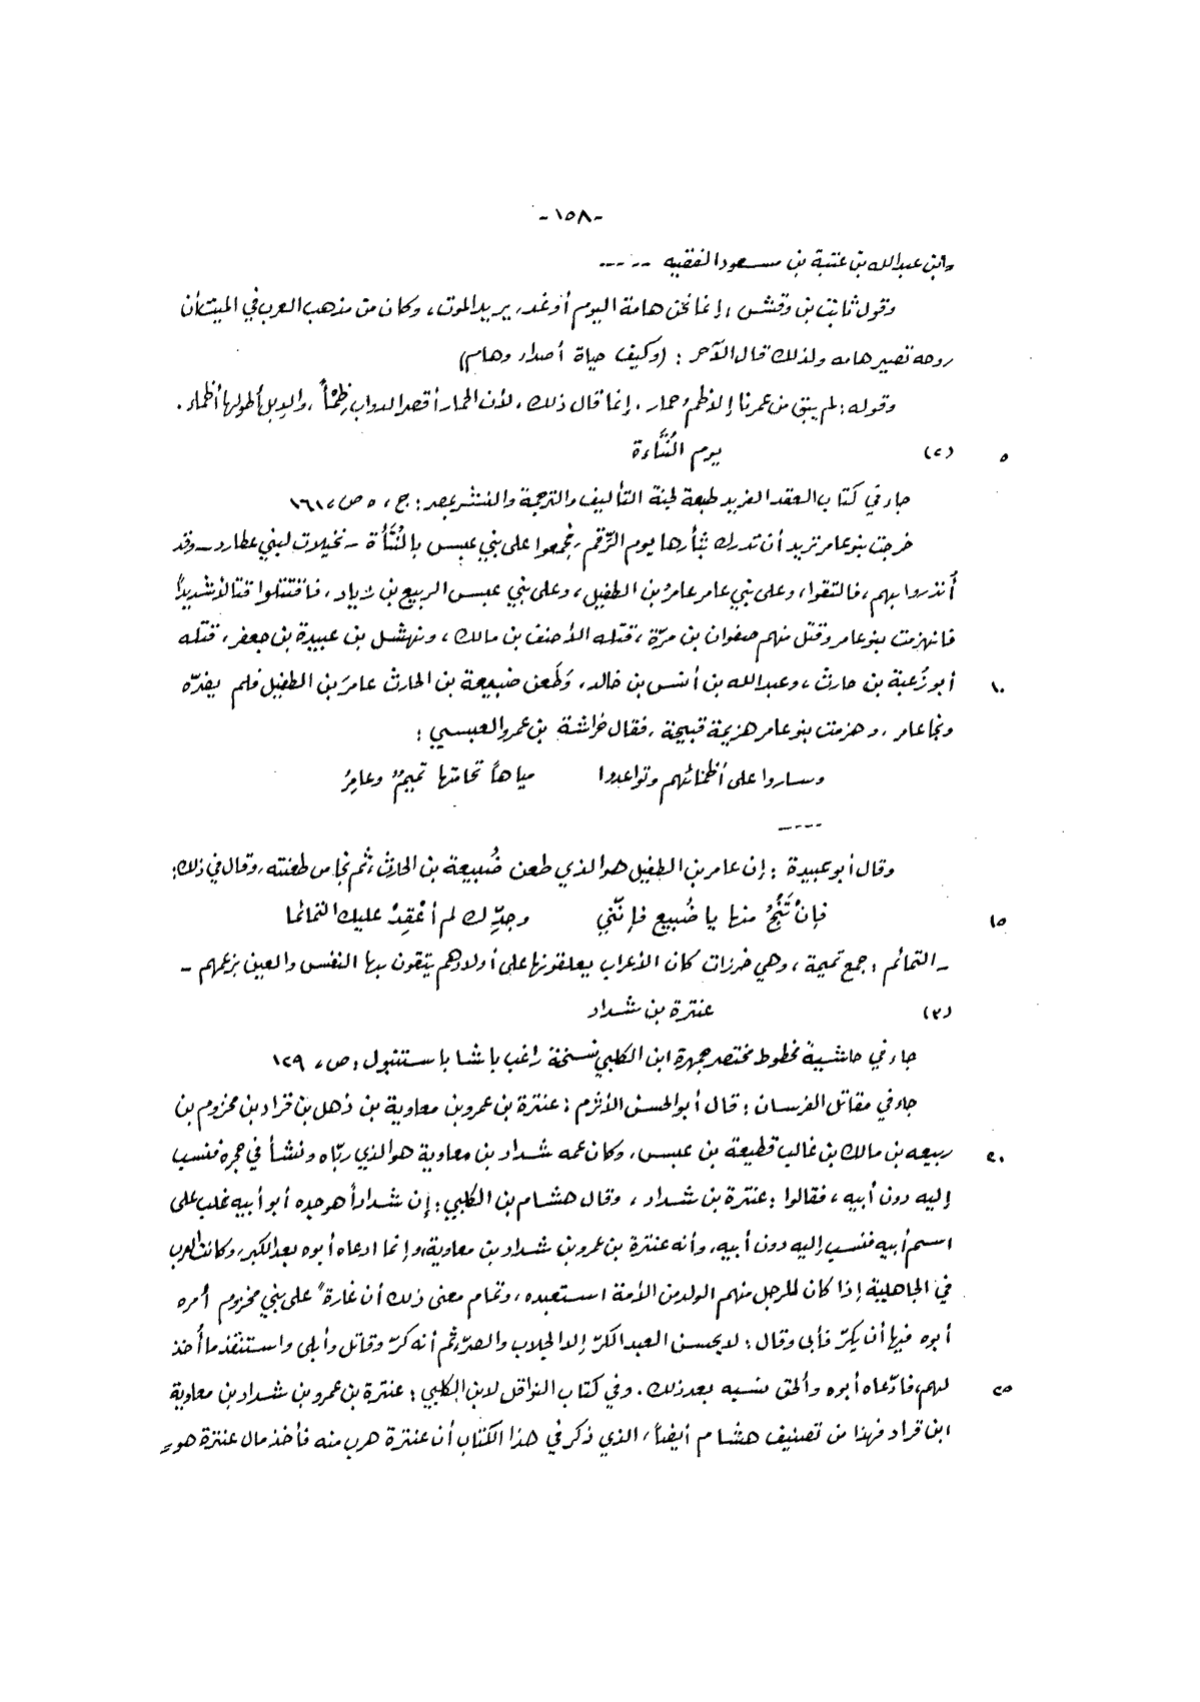 -١٥٨-
وابن عبدالله بن عتبة بن مسعود الفقيه -- ---
وقول ثابت بن وقش : إنما نحن هامة اليوم أو غد، يريد الموت، وكان من مذهب العرب في الميت أن
روحه تصير هامه ولذلك قال الآخر : (وكيف حياة أصداء وهام)
وقوله : لم يبق من عمرنا إلا ظمءُ حمار ، إنما قال ذلك ، لأن الحمار أقصر الدواب ظِمْأً ، والإبل أطولها أظماء .
٥ (٢) يوم النُّتَأة
جاء في كتاب العقد الفريد طبعة لجنة التأليف والترجمة والنشر بمصر : ج ، ٥ ص ، ١٦١
خرجت بنو عامر تريد أن تدرك بثأرها يوم الرّقَم ، فجمعوا على بني عبس بالنُّتَأَة - نخيلات لبني عطارد - وقد
أُنذروا بهم ، فالتقوا ، وعلى بني عامر عامرُ بن الطفيل ، وعلى بني عبس الربيع بن زياد ، فاقتتلوا قتالاً شديداً
فانهزمت بنو عامر وقتل منهم صفوان بن مرّة ، قتله الأحنف بن مالك ، ونهشل بن عبيدة بن جعفر ، قتله
١٠ أبو زُعبة بن حارث ، وعبدالله بن أنس بن خالد . وَطَعن ضبيعة بن الحارث عامرَ بن الطفيل فلم يضرّه
ونجا عامر ، وهزمت بنو عامر هزيمة قبيحة ، فقال خُراشة بن عمرو العبسي :
وساروا على أظمائهم وتواعدوا مياهاً تحامتها تميمٌ وعامِرُ
-----
وقال أبو عبيدة : إن عامر بن الطفيل هو الذي طعن ضُبيعة بن الحارث ، ثم نجا من طعنته ، وقال في ذلك :
١٥ فإنْ تَنْجُ منها يا ضُبيع فإنّني وجدِّك لم أعْقِدْ عليك التمائما
- التمائم : جمع تميمة ، وهي خرزات كان الأعراب يعلقونها على أولادهم يتقون بها النفس والعين بزعمهم -
(٣) عنترة بن شداد
جاء في حاشية مخطوط مختصر جمهرة ابن الكلبي نسخة راغب باشا باستنبول : ص ، ١٢٩
جاء في مقاتل الفرسان : قال أبو الحسن الأثرم : عنترة بن عمرو بن معاوية بن ذهل بن قراد بن مخزوم بن
٢٠ ربيعه بن مالك بن غالب قطيعة بن عبس ، وكان عمه شداد بن معاوية هو الذي ربّاه ونشأ في حجره فنسب
إليه دون أبيه ، فقالوا : عنترة بن شداد ، وقال هشام بن الكلبي : إن شداداً هو جده أبو أبيه غلب على
اسم أبيه فنسب إليه دون أبيه ، وأنه عنترة بن عمرو بن شداد بن معاوية ، وإنما ادعاه أبوه بعد الكبر ، وكانت العرب
في الجاهلية إذا كان للرجل منهم الولد من الأمة استعبده ، وتمام معنى ذلك أن غارة ً على بني مخزوم أمره
أبوه فيها أن يكرّ فأبى وقال : لا يحسن العبد الكرّ إلا الحلاب والصرّ ، ثم أنه كرّ وقاتل وأبلى واستنقذ ما أُخذ
٢٥ لهم ، فادّعاه أبوه وألحق نسبه بعد ذلك . وفي كتاب النواقل لابن الكلبي : عنترة بن عمرو بن شداد بن معاوية
ابن قراد فهذا من تصنيف هشام أيضاً ، الذي ذكر في هذا الكتاب أن عنترة هرب منه فأخذ مال عنترة هو